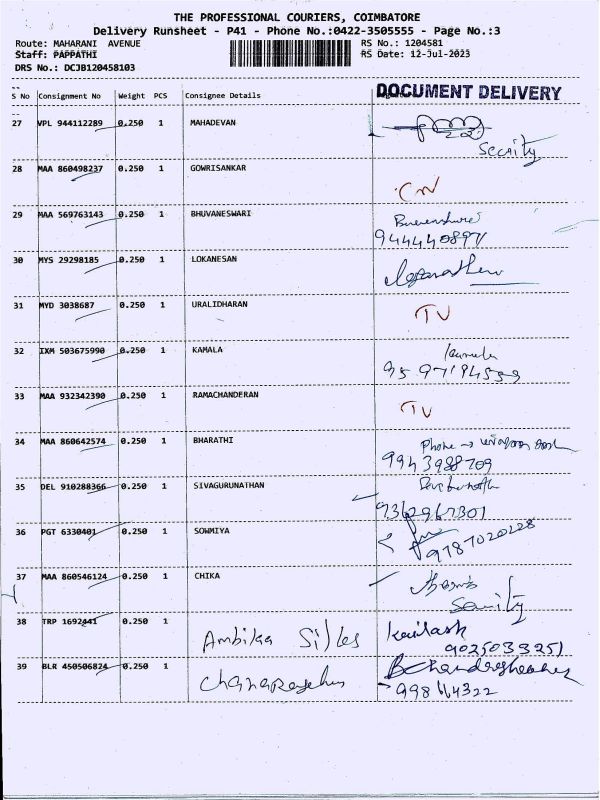 THE PROFESSIONAL COURIERS, COIMBATORE
Delivery Runsheet - P41 - Phone No.:0422-3505555 - Page No.:3
Route: MAHARANI AVENUE RS No.: 1204581
Staff: PAPPATHI RS Date: 12-Jul-2023
DRS No.: DCJB120458103
DOCUMENT DELIVERY
S No Consignment No Weight PCS Consignee Details
27 VPL 944112289 0.250 1 MAHADEVAN
Secrity
28 MAA 860498237 0.250 1 GOWRISANKAR
29 MAA 569763143 0.250 1 BHUVANESWARI
9444408971
30 MYS 29298185 0.250 1 LOKANESAN
31 MYD 3038687 0.250 1 URALIDHARAN
TV
32 IXM 503675990 0.250 1 KAMALA
Kamala
33 MAA 932342390 0.250 1 RAMACHANDERAN
TV
34 MAA 860642574 0.250 1 BHARATHI
Phone →
9943988709
35 DEL 910288366 0.250 1 SIVAGURUNATHAN
9362967301
36 PGT 6330401 0.250 1 SOWMIYA
9787020228
37 MAA 860546124 0.250 1 CHIKA
38 TRP 1692441 0.250 1 Ambika Silks Kailash
9025033251
39 BLR 450506824 0.250 1 BChandrashekar